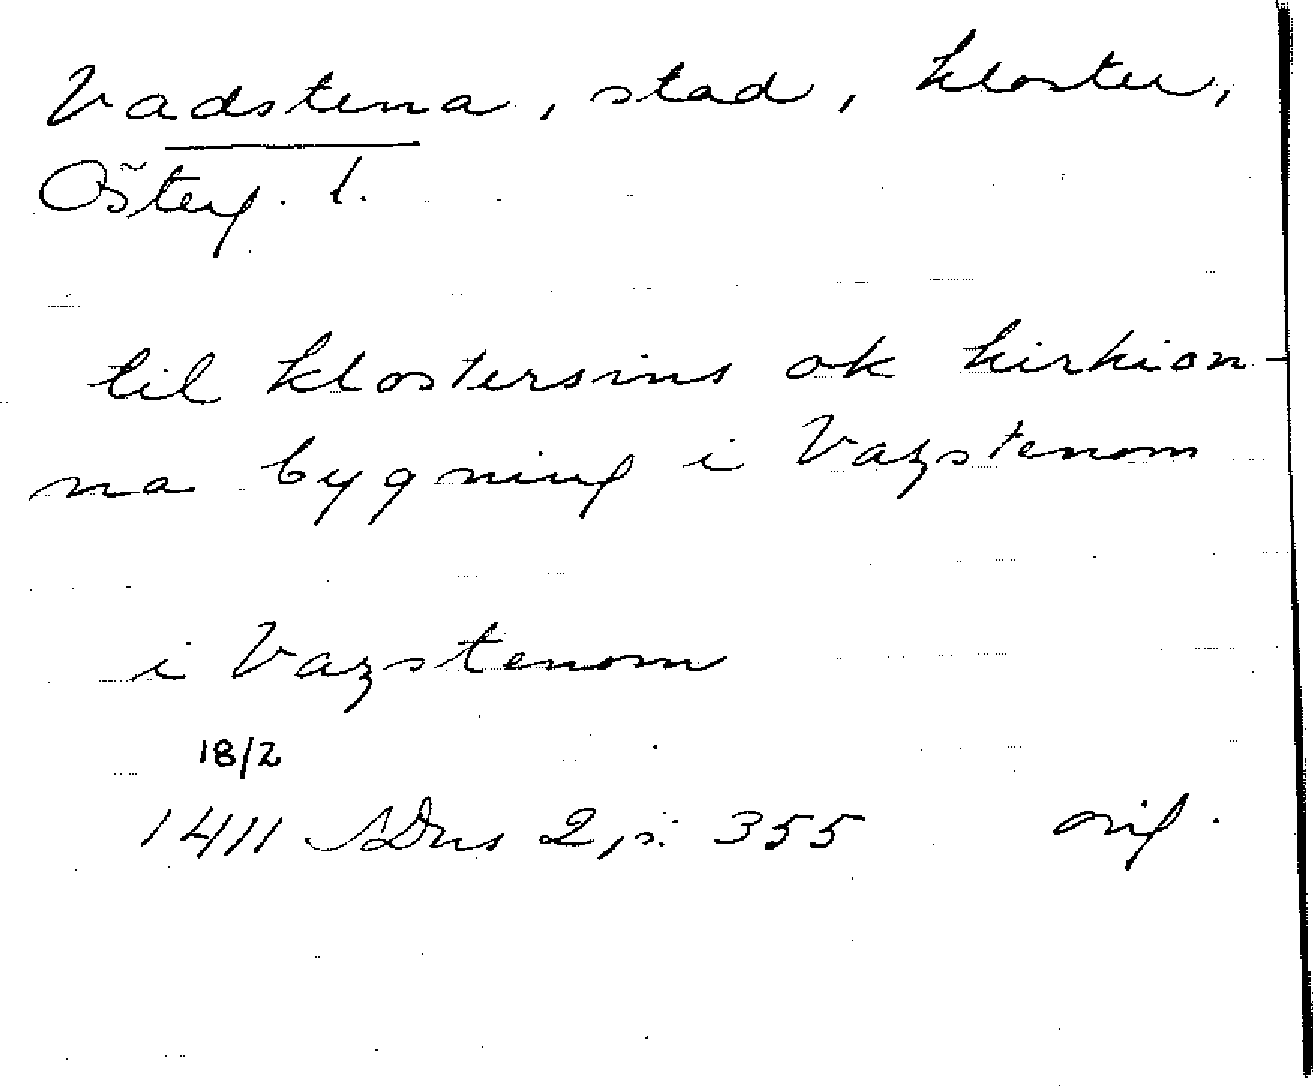 Vadstena, stad, kloster,
Österg. l.
til klostersins ok kirkion-
na bygning i Vazstenom
i Vazstenom
18/2
1411 SDns 2, s. 355 orig.